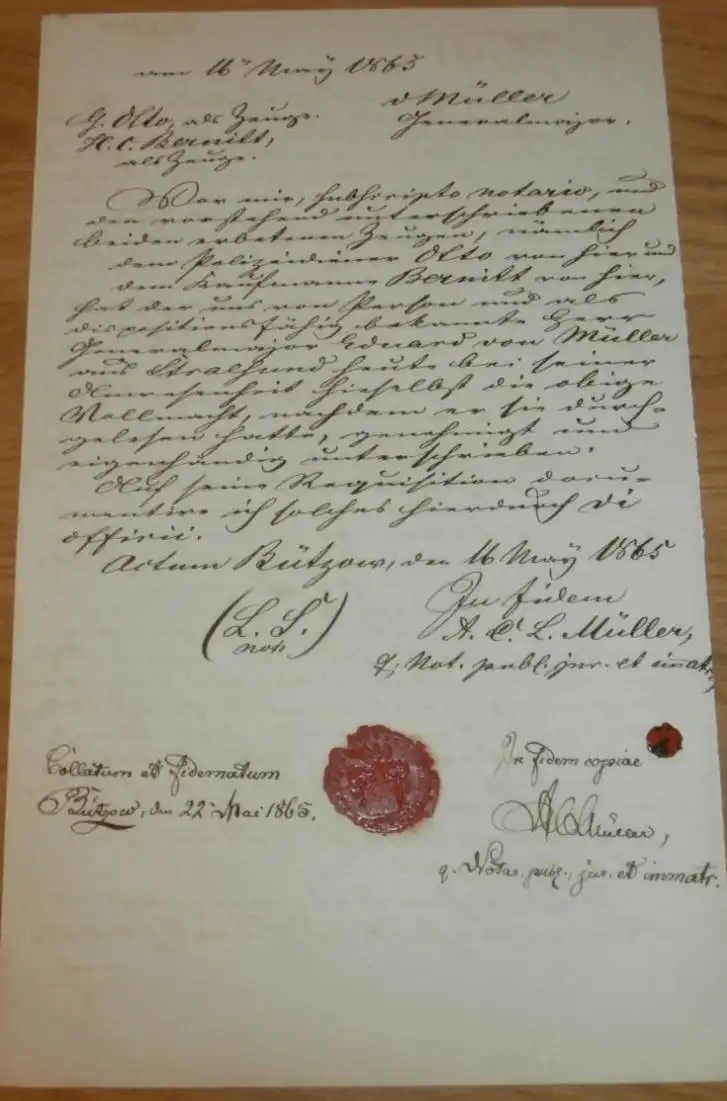 am 16ⁿ May 1865
v Müller
Generalmajor.
G. Otto, als Zeuge.
H. C. Bernitt,
als Zeuge.
Vor mir, subscripto notario, und
den vorstehend unterschriebenen
beiden erbetenen Zeugen, nämlich
dem Polizeidiener Otto von hier und
dem Kaufmanne Bernitt von hier,
hat der uns von Person und als
dispositionsfähig bekannte Herr
Generalmajor Eduard von Müller
aus Stralsund heute bei seiner
Anwesenheit hieselbst die obige
Vollmacht, nachdem er sie durch-
gelesen hatte, genehmigt und
eigenhändig unterschrieben.
Auf seine Requisition docu-
mentire ich solches hierdurch
officii.
Actum Bützow, den 16 May 1865
(L. S.)
not.
In fidem
A. C. L. Müller,
q. Not. publ. jur. et immatr.
Collatum et fidematum
Bützow, den 22ⁿ Mai 1865.
In fidem copiae
ACLMüller,
q. Notar. publ., jur. et immatr.